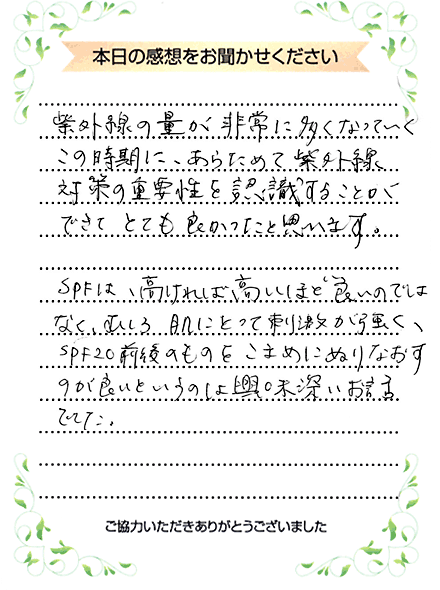 本日の感想をお聞かせください
紫外線の量が非常に多くなっていく
この時期に、あらためて紫外線
対策の重要性を認識することが
できて とても良かったと思います。
SPFは、高ければ高いほど良いのでは
なく、むしろ 肌にとって刺激が強く、
SPF20前後のものをこまめにぬりなおす
のが良いというのは興味深いお話
でした。
ご協力いただきありがとうございました